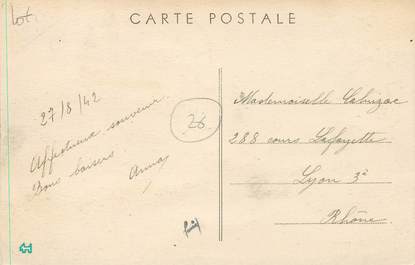 Lot
CARTE POSTALE
27/8/42
Affectueux souvenir.
Bons baisers.
Anna
26
Mademoiselle Cabrizac
288 cours Lafayette
Lyon 3e
Rhône.